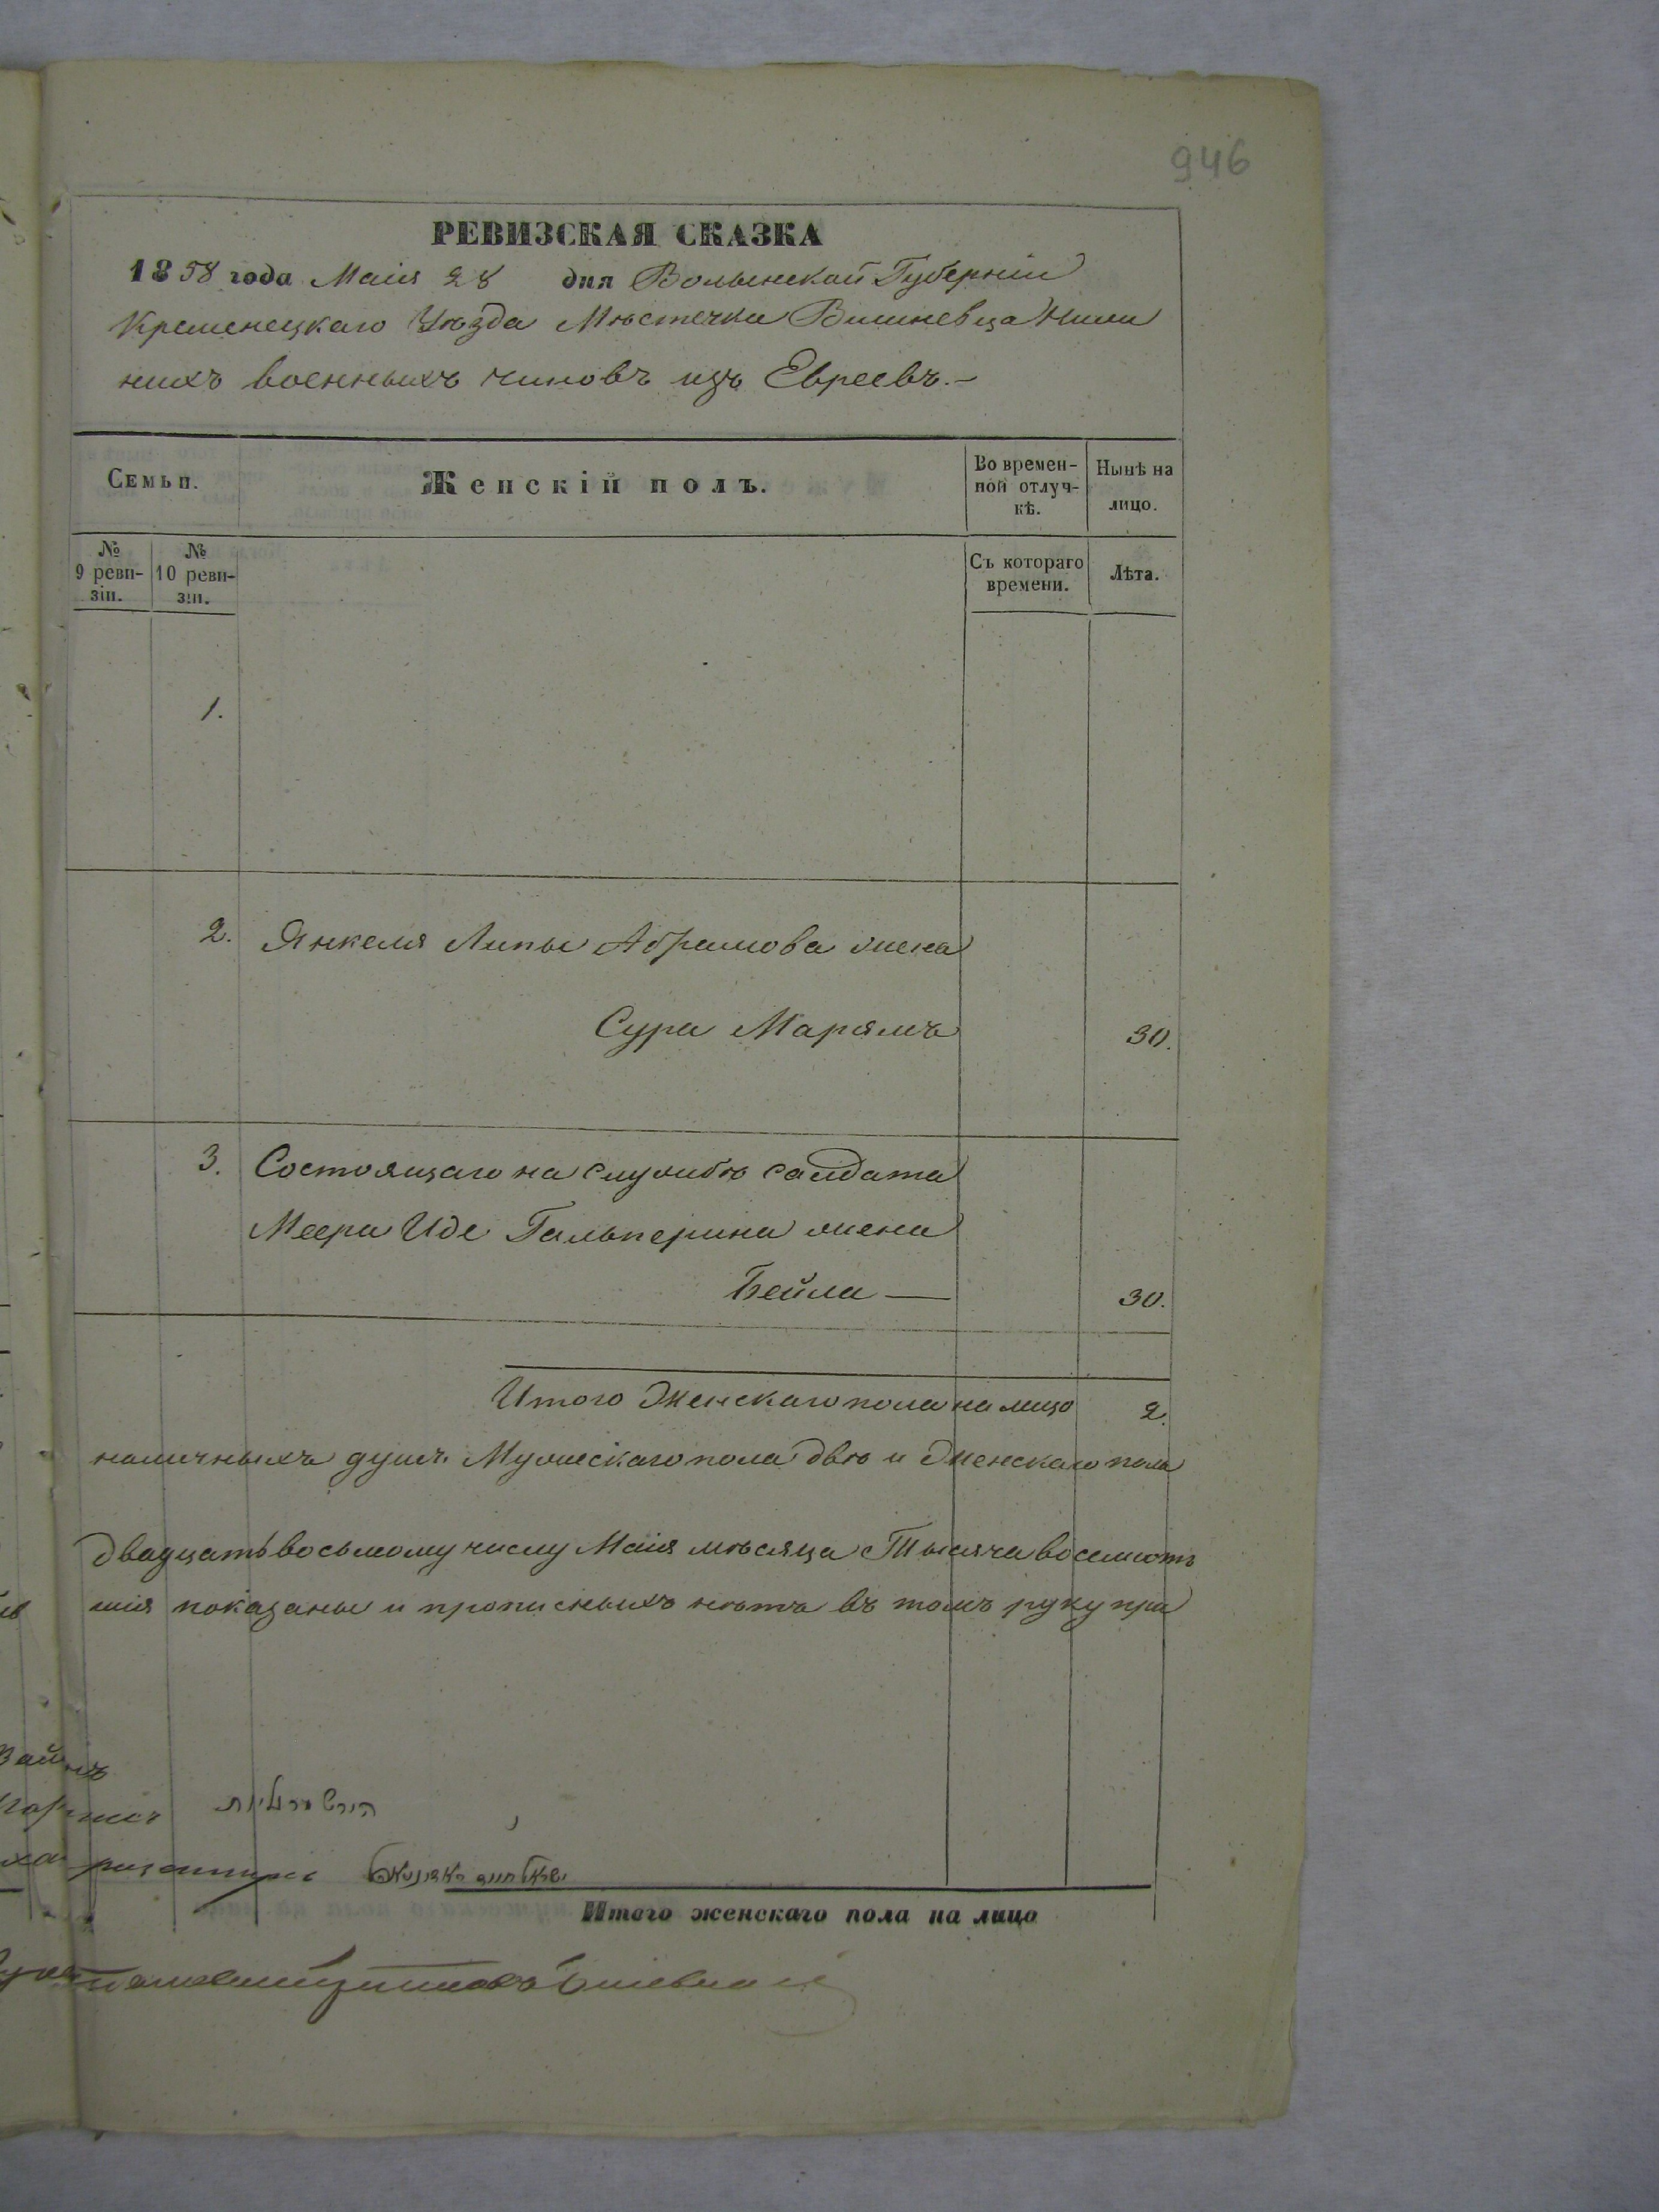 946
РЕВИЗСКАЯ СКАЗКА
1858 года Маія 28 дня Волынской Губерніи
Кременецкаго Уѣзда Мѣстечка Вишневца Ниж
нихъ военныхъ чиновъ изъ Евреевъ.-
Семьи. Женскій полъ. Во времен-ной отлуч-кѣ. Нынѣ на лицо.
№ 9 реви-зіи. № 10 реви-зіи. Съ котораго времени. Лѣта.
1.
2. Янкеля Липы Абрамова жена
Сура Марямъ 30.
3. Состоящаго на службѣ салдата
Меера Иде Гальперина жена
Бейла — 30.
Итого Женскаго пола на лицо 2.
наличныхъ душъ Мужескаго пола двѣ и Женскаго пола
двадцать восьмому числу Маія мѣсяца Тысяча восемьсотъ
шія показаны и прописныхъ нѣтъ въ томъ руку при
Итого женскаго пола на лицо